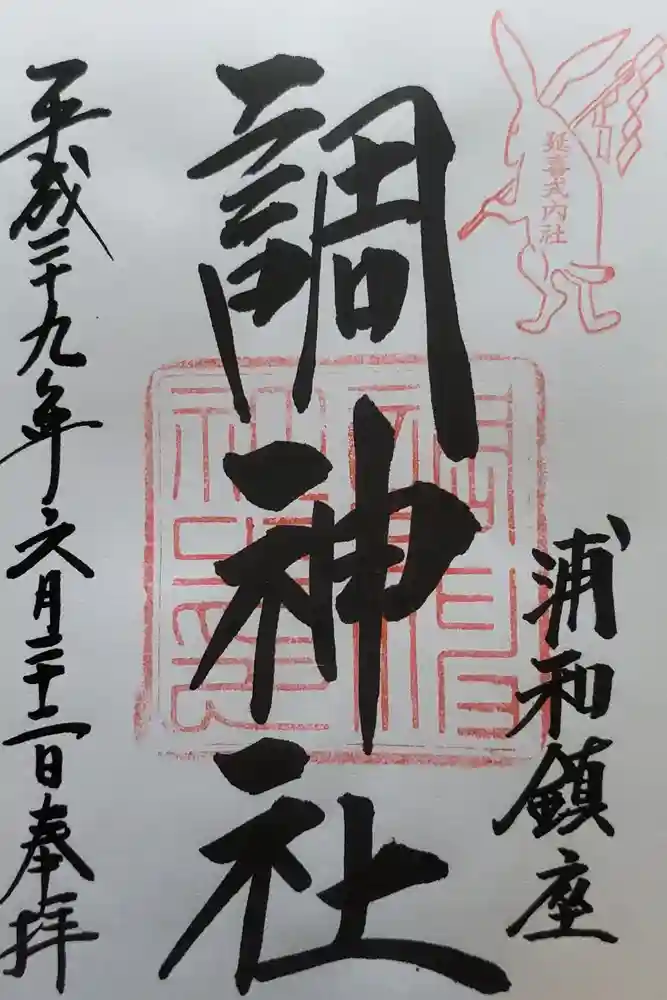 延喜式内社
浦和鎮座
調神社
平成二十九年六月二十二日奉拝